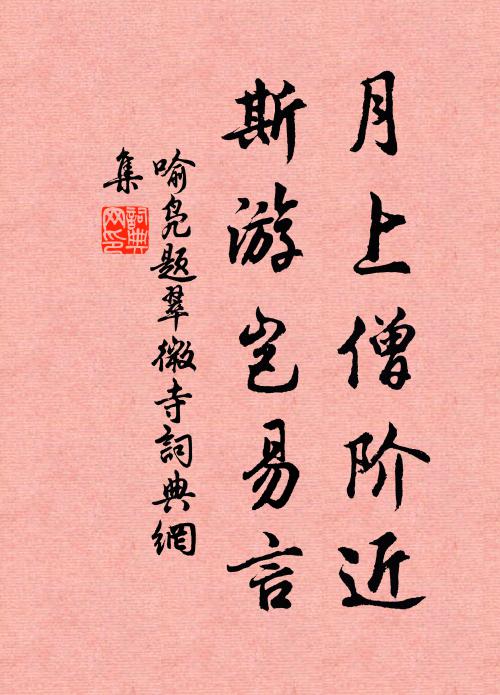 月上僧阶近
斯游岂易言
喻凫题翠微寺詞典網
集
詞典
网印